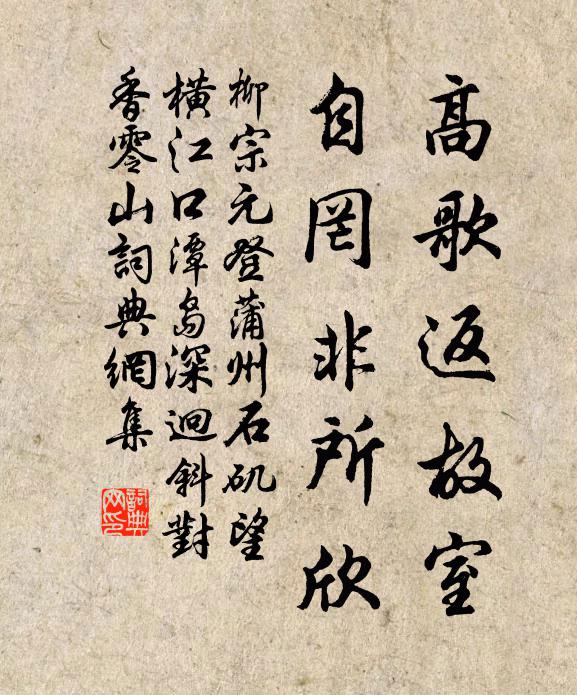 高歌返故室
自罔非所欣
柳宗元登蒲州石矶望
橫江口潭島深迥斜對
香零山詞典網集
詞典
网印